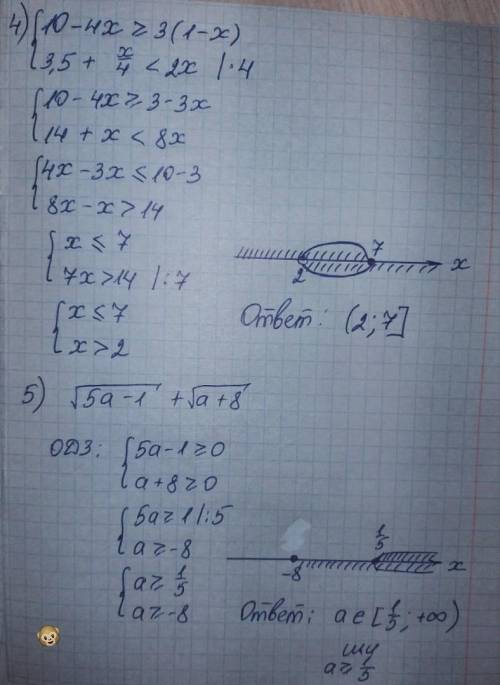 4) { 10 - 4x ≥ 3(1 - x)
3,5 + x/4 < 2x | · 4
{ 10 - 4x ≥ 3 - 3x
14 + x < 8x
{ 4x - 3x ≤ 10 - 3
8x - x > 14
{ x ≤ 7
7x > 14 | : 7
{ x ≤ 7
x > 2
2 7 x
Ответ: (2; 7]
5) √5a - 1 + √a + 8
ОДЗ: { 5a - 1 ≥ 0
a + 8 ≥ 0
{ 5a ≥ 1 | : 5
a ≥ -8
{ a ≥ 1/5
a ≥ -8
-8 1/5 x
Ответ: a ∈ [1/5; +∞)
a ≥ 1/5